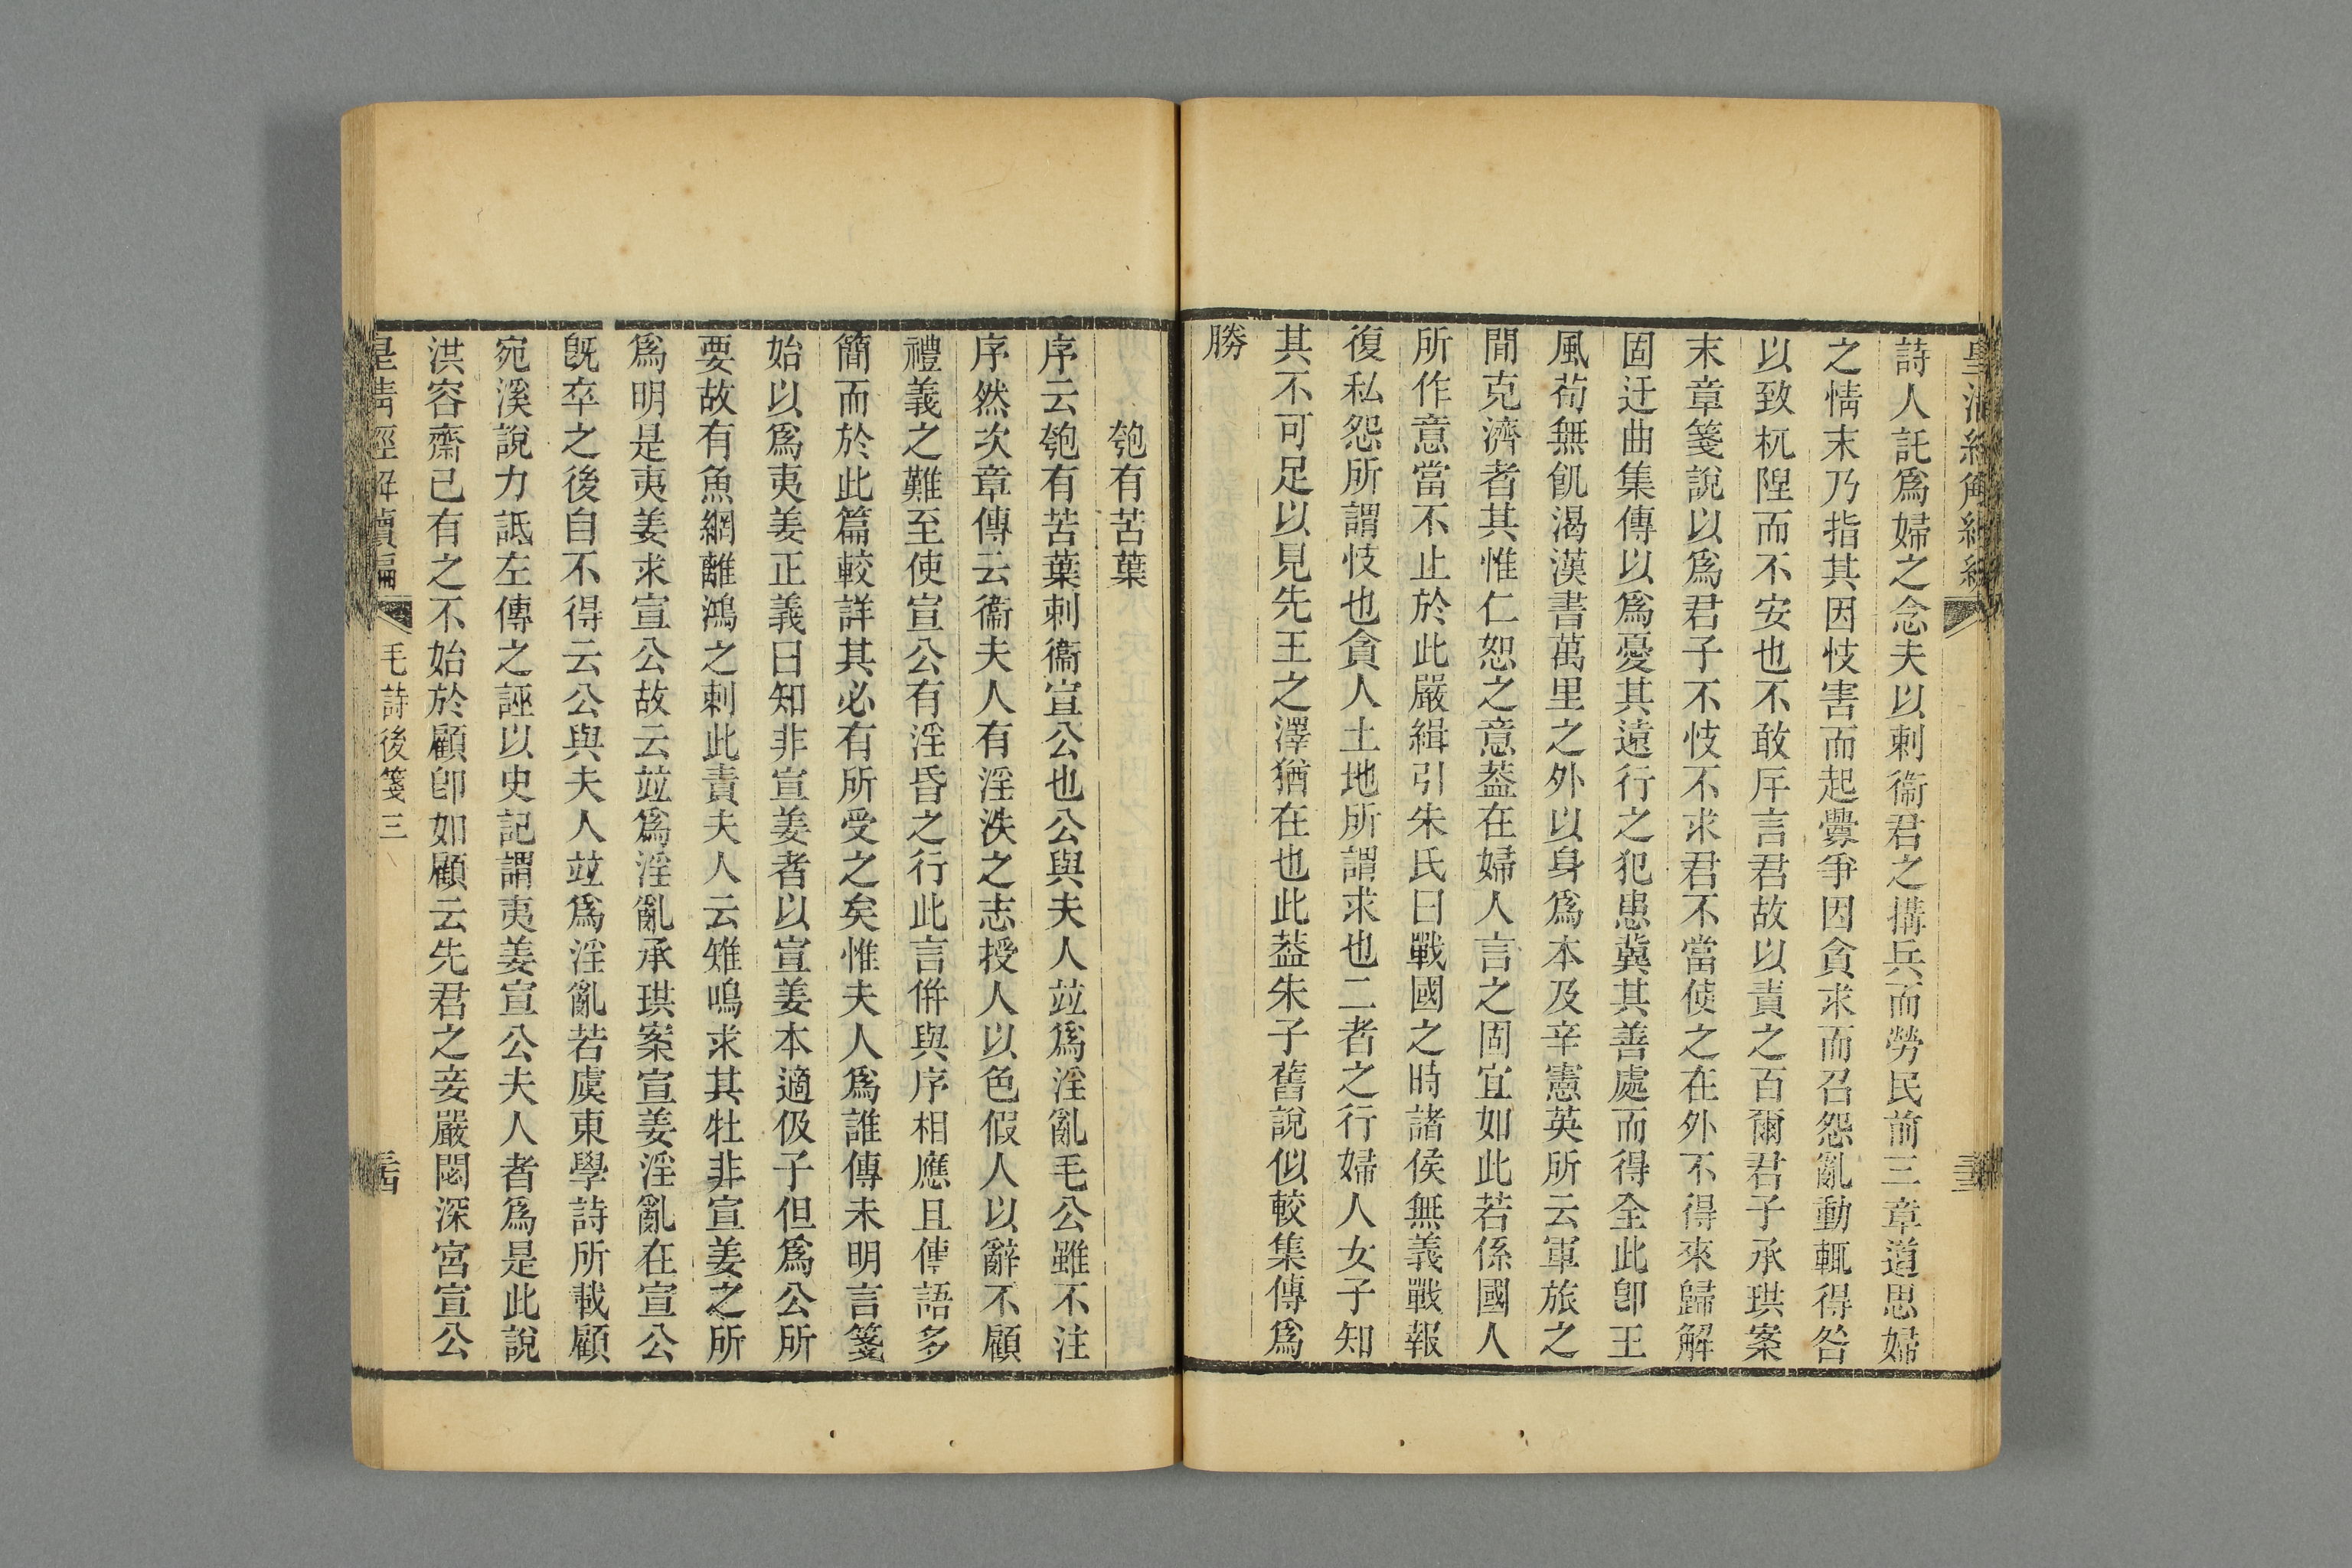 詩人託爲婦之念夫以刺衞君之搆兵而勞民前三章道思婦
之情末乃指其因忮害而起釁爭因貪求而召怨亂動輒得咎
以致杌隉而不安也不敢斥言君故以責之百爾君子承珙案
末章箋說以爲君子不忮不求君不當使之在外不得來歸解
固迂曲集傳以爲憂其遠行之犯患冀其善處而得全此卽王
風苟無飢渴漢書萬里之外以身爲本及辛憲英所云軍旅之
閒克濟者其惟仁恕之意葢在婦人言之固宜如此若係國人
所作意當不止於此嚴緝引朱氏曰戰國之時諸侯無義戰報
復私怨所謂忮也貪人土地所謂求也二者之行婦人女子知
其不可足以見先王之澤猶在也此葢朱子舊說似較集傳爲
勝
匏有苦葉
序云匏有苦葉刺衞宣公也公與夫人竝爲淫亂毛公雖不注
序然次章傳云衞夫人有淫泆之志授人以色假人以辭不顧
禮義之難至使宣公有淫昏之行此言併與序相應且傳語多
簡而於此篇較詳其必有所受之矣惟夫人爲誰傳未明言箋
始以爲夷姜正義曰知非宣姜者以宣姜本適伋子但爲公所
要故有魚網離鴻之刺此責夫人云雉鳴求其牡非宣姜之所
爲明是夷姜求宣公故云竝爲淫亂承珙案宣姜淫亂在宣公
旣卒之後自不得云公與夫人竝爲淫亂若虞東學詩所載顧
宛溪說力詆左傳之誣以史記謂夷姜宣公夫人者爲是此說
洪容齋已有之不始於顧卽如顧云先君之妾嚴閟深宮宣公
皇淸經解續編
毛詩後箋三